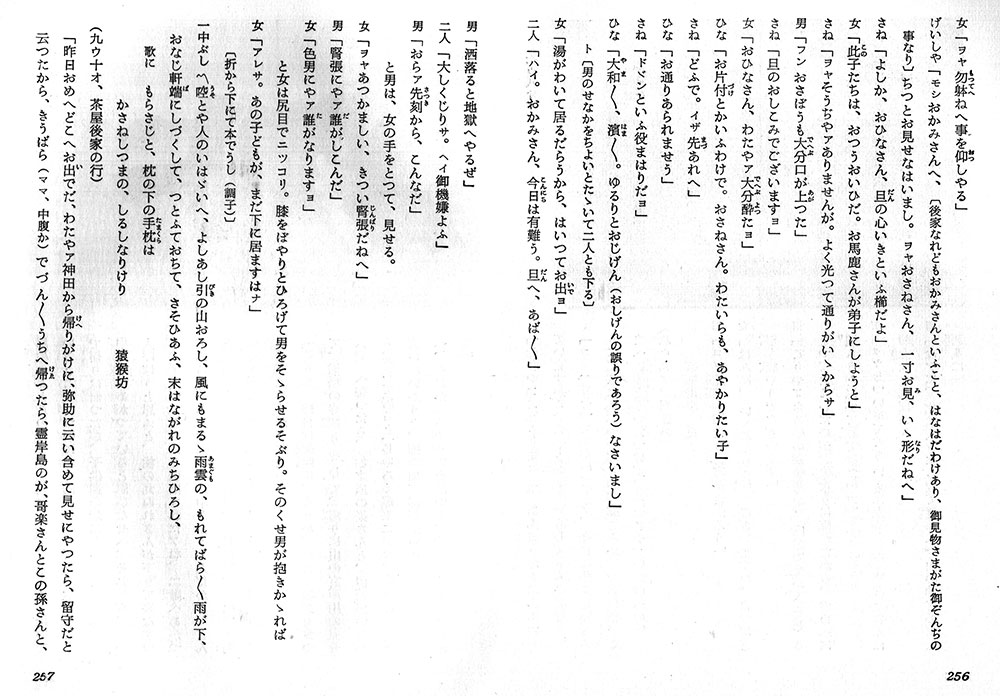 女「ヲャ勿躰ねへ事を仰しやる」
げいしや「モシおかみさんへ、〔後家なれどもおかみさんといふこと、はなはだわけあり、御見物さまがた御ぞんぢの
事なり〕ちつとお見せなはいまし。ヲャおさねさん、一寸お見、いゝ形だねへ」
さね「よしか、おひなさん、旦の心いきといふ櫛だよ」
女「此子たちは、おつうおいひだ。お馬鹿さんが弟子にしようと」
さね「ヲャそうぢやアありませんが。よく光つて通りがいゝからサ」
男「フン おさぼうも大分口が上つた」
さね「旦のおしこみでございますョ」
女「おひなさん、わたやア大分酔たョ」
ひな「お片付とかいふわけで。おさねさん。わたいらも、あやかりたい子」
さね「どふで。イザ先あれへ」
ひな「お通りあられませう」
さね「ドヾンといふ役まはりだョ」
ひな「大和〳〵、濱〳〵。ゆるりとおじげん（おしげんの誤りであろう）なさいまし」
ト〔男のせなかをちよいとたゝいて二人とも下る〕
女「湯がわいて居るだらうから、はいつてお出ョ」
二人「ハイ。おかみさん、今日は有難う。旦へ、あば〳〵」
男「洒落ると地獄へやるぜ」
二人「大しくじりサ。ヘイ御機嫌よふ」
男「おらア先刻から、こんなだ」
と男は、女の手をとつて、見せる。
女「ヲャあつかましい、きつい腎張だねへ」
男「腎張にやア誰がしこんだ」
女「色男にやア誰がなりますョ」
と女は尻目でニッコリ。膝をぼやりとひろげて男をそゝらせるそぶり。そのくせ男が抱きかゝれば
女「アレサ。あの子どもが、まだ下に居ますはナ」
〔折から下にて本でうし（調子）〕
一中ぶし〽嘘とや人のいはゞいへ、よしあし引の山おろし、風にもまるゝ雨雲の、もれてばら〳〵雨が下、
おなじ軒端にしづくして、つとふておちて、さそひあふ、末はながれのみちひろし、
歌に　もらさじと、枕の下の手枕は
かさねしつまの、しるしなりけり
猿猴坊
（九ウ十オ、茶屋後家の行）
「昨日おめへどこへお出でだ、わたやア神田から帰りがけに、弥助に云い含めて見せにやつたら、留守だと
云つたから、きうばら（ママ、中腹か）でづん〳〵うちへ帰つたら、霊岸島のが、哥楽さんとこの孫さんと、
257
256